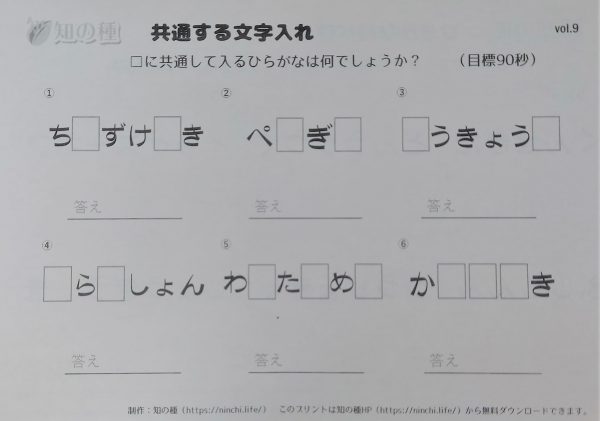 知の種 共通する文字入れ vol.9
□に共通して入るひらがなは何でしょうか？ （目標90秒）
① ② ③
ち□ずけ□き ぺ□ぎ□ □うきょう□
答え 答え 答え
④ ⑤ ⑥
□ら□しょん わ□た□め□ か□□□き
答え 答え 答え
制作：知の種（https://ninchi.life/） このプリントは知の種HP（https://ninchi.life/）から無料ダウンロードできます。